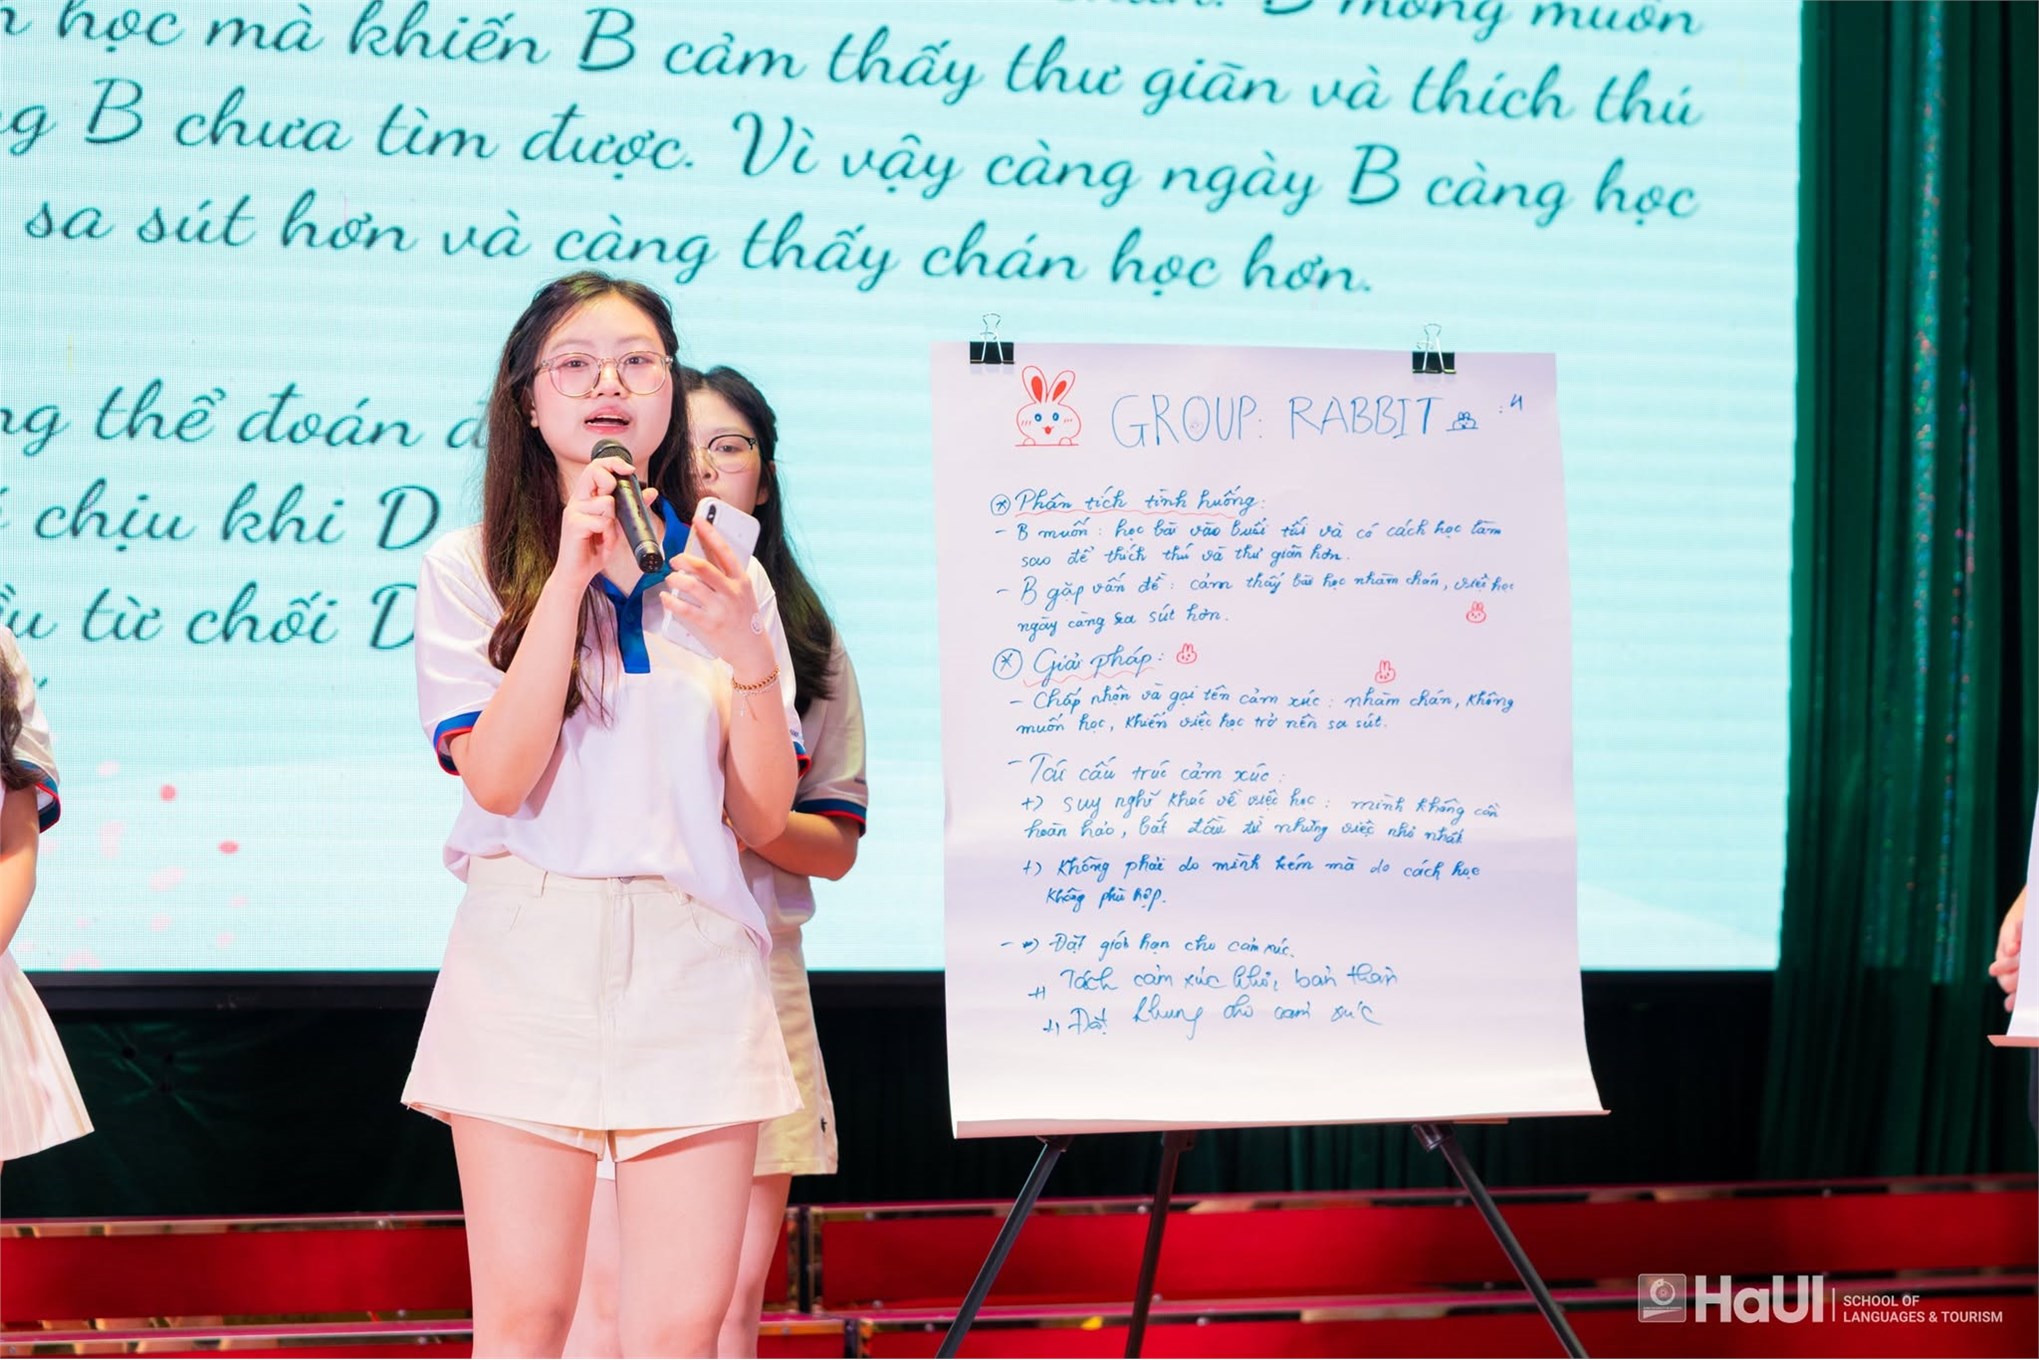 mong muốn
học mà khiến B cảm thấy thư giãn và thích thú
B chưa tìm được. Vì vậy càng ngày B càng học
sa sút hơn và càng thấy chán học hơn.
thể đoán
chịu khi D
từ chối D
GROUP: RABBIT :4
* Phân tích tình huống:
- B muốn: học bài vào buổi tối và có cách học làm
sao để thích thú và thư giãn hơn.
- B gặp vấn đề: cảm thấy bài học nhàm chán, việc học
ngày càng sa sút hơn.
* Giải pháp:
- Chấp nhận và gọi tên cảm xúc: nhàm chán, không
muốn học, khiến việc học trở nên sa sút.
- Tái cấu trúc cảm xúc:
+) suy nghĩ khác về việc học: mình không cần
hoàn hảo, bắt đầu từ những việc nhỏ nhất
+) Không phải do mình kém mà do cách học
không phù hợp.
- Đặt giới hạn cho cảm xúc.
+) Tách cảm xúc khỏi bản thân
+) Đặt khung cho cảm xúc
HaUI
SCHOOL OF
LANGUAGES & TOURISM